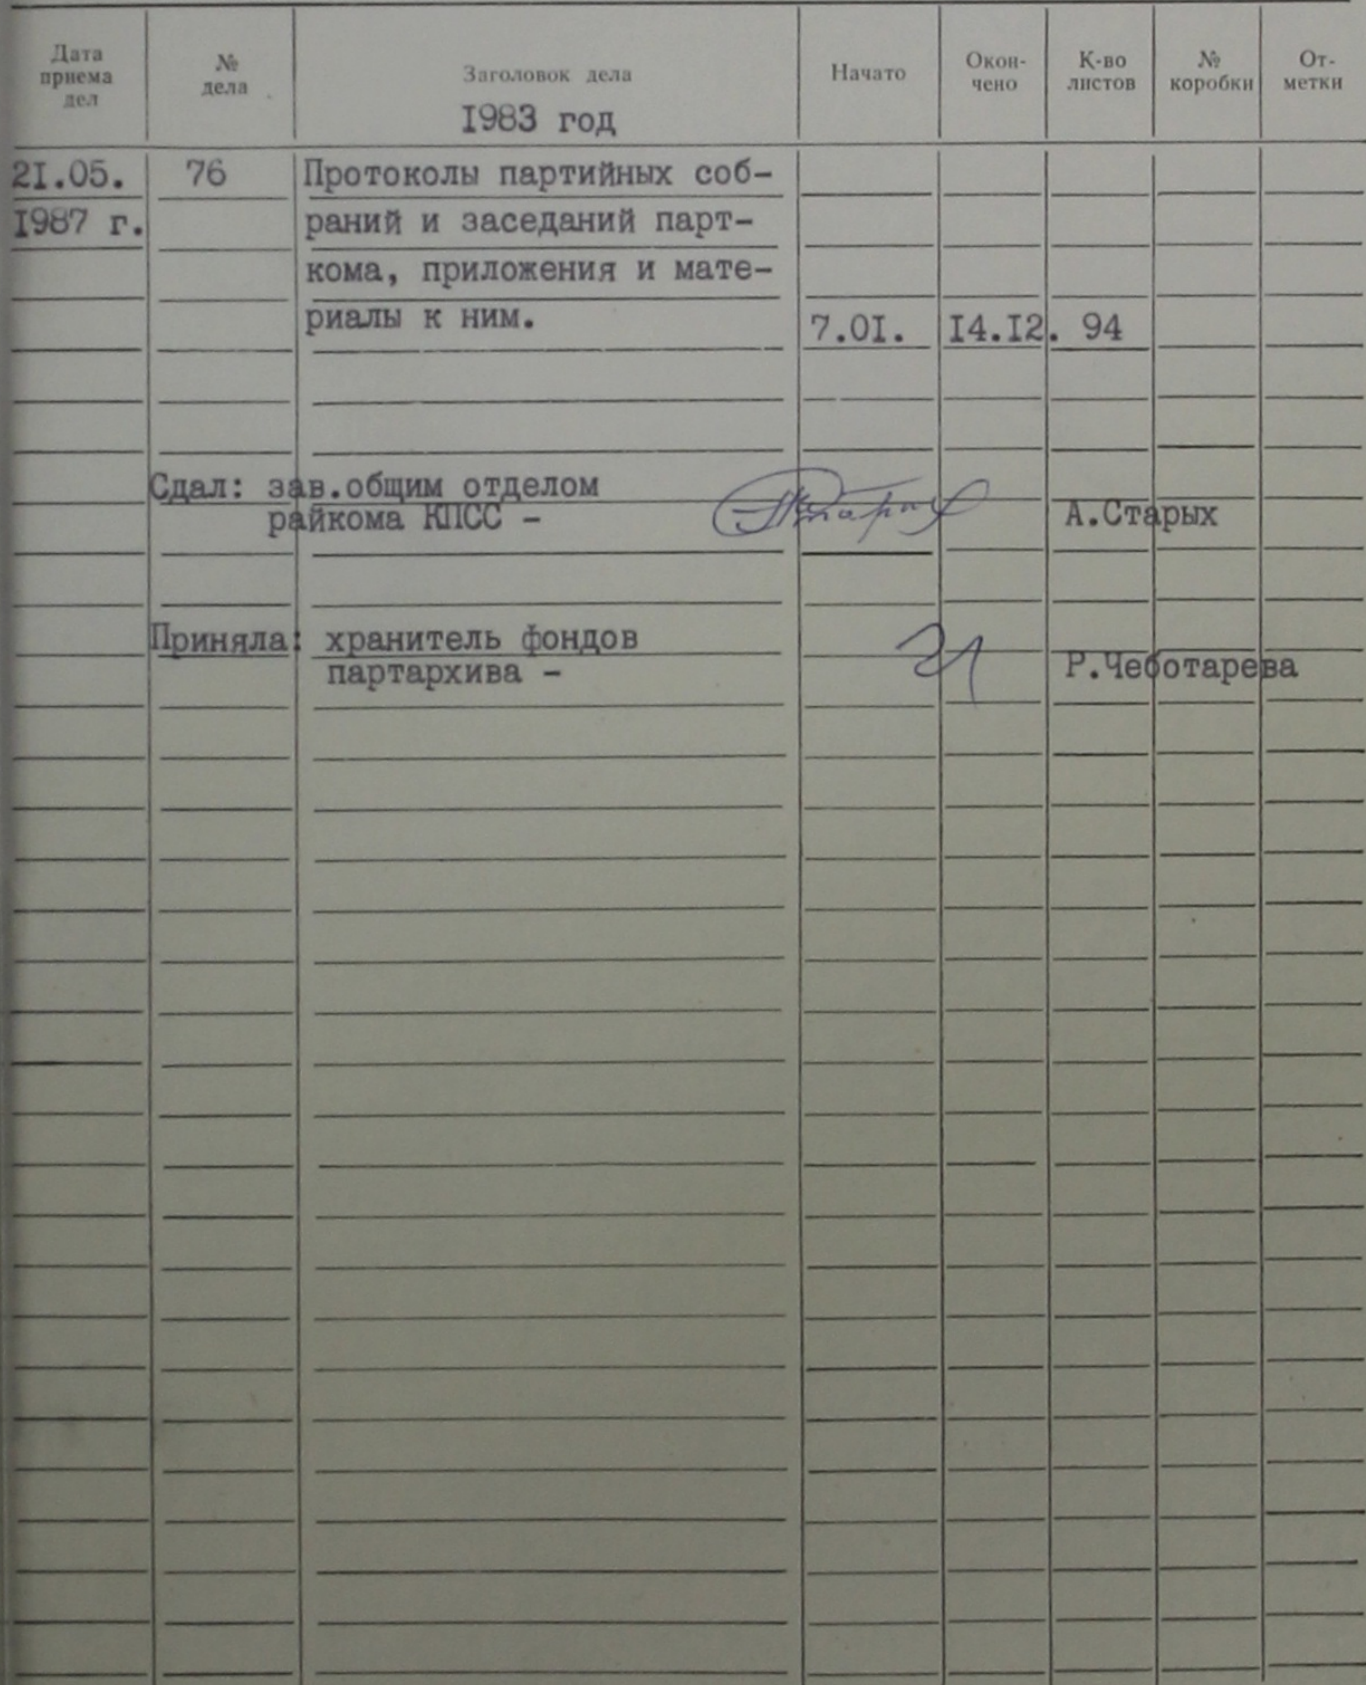 Дата приема дел № дела Заголовок дела Начато Окон-чено К-во листов № коробки От-метки
1983 год
21.05. 76 Протоколы партийных соб-
1987 г. раний и заседаний парт-
кома, приложения и мате-
риалы к ним. 7.01. 14.12. 94
Сдал: зав.общим отделом
райкома КПСС - А.Старых
Приняла: хранитель фондов
партархива - Р.Чеботарева